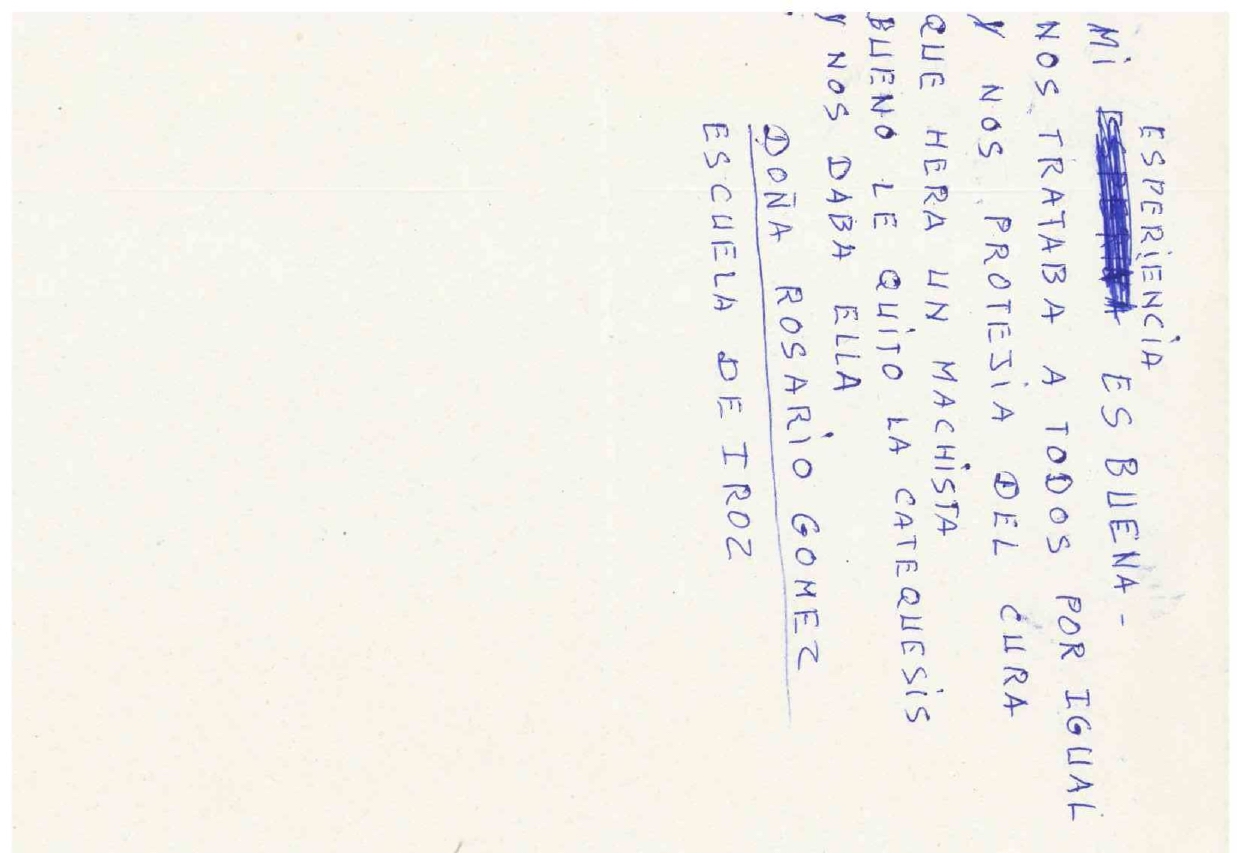 ESPERIENCIA
MI ES BUENA -
NOS TRATABA A TODOS POR IGUAL
Y NOS PROTEJIA DEL CURA
QUE HERA UN MACHISTA
BUENO LE QUITO LA CATEQUESIS
Y NOS DABA ELLA
DOÑA ROSARIO GOMEZ
ESCUELA DE IROZ